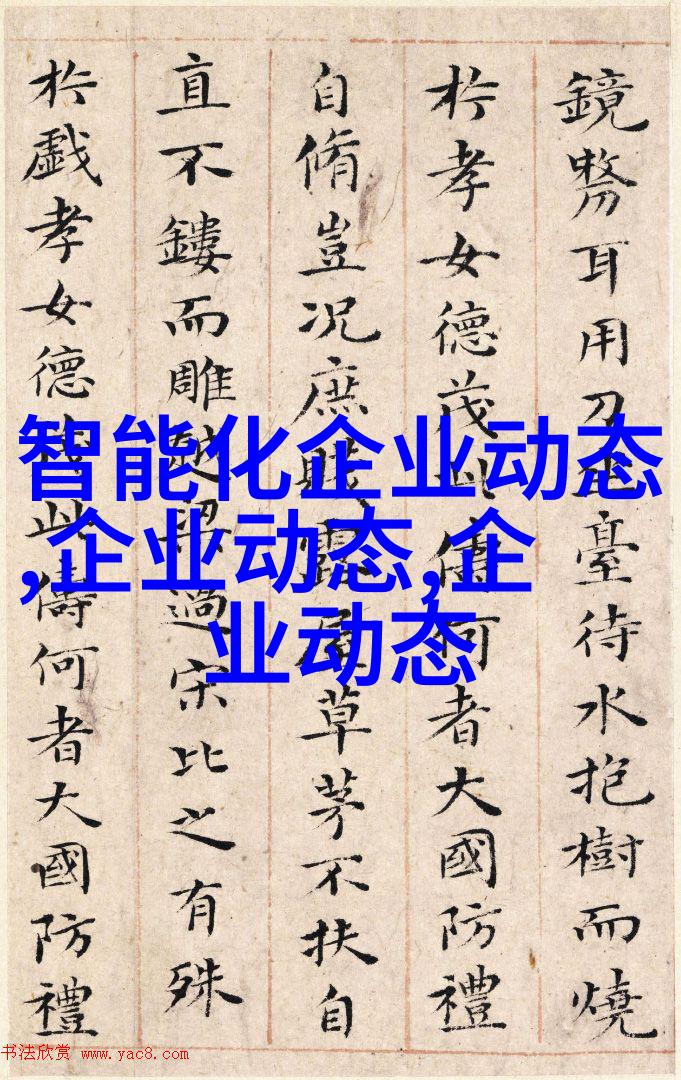 鏡弊耳用刀坐臺待水抱樹而燒
於孝女德茂此儔何者大國防禮
自脩豈况庶賤露屋草茅不扶自
直不鏤而雕越梁過宋比之有殊
於戲孝女德茂此儔何者大國防禮
智能化企业动态
,企业动态,企
业动态
书法欣赏 www.yac8.com